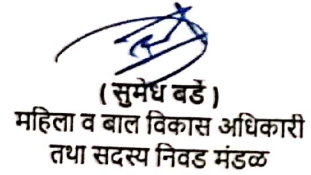 ( सुमेध बर्डे )
महिला व बाल विकास अधिकारी
तथा सदस्य निवड मंडळ